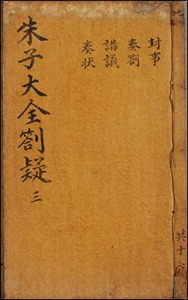 朱子大全劄疑 三
封事
奏劄
講議
奏状
共十